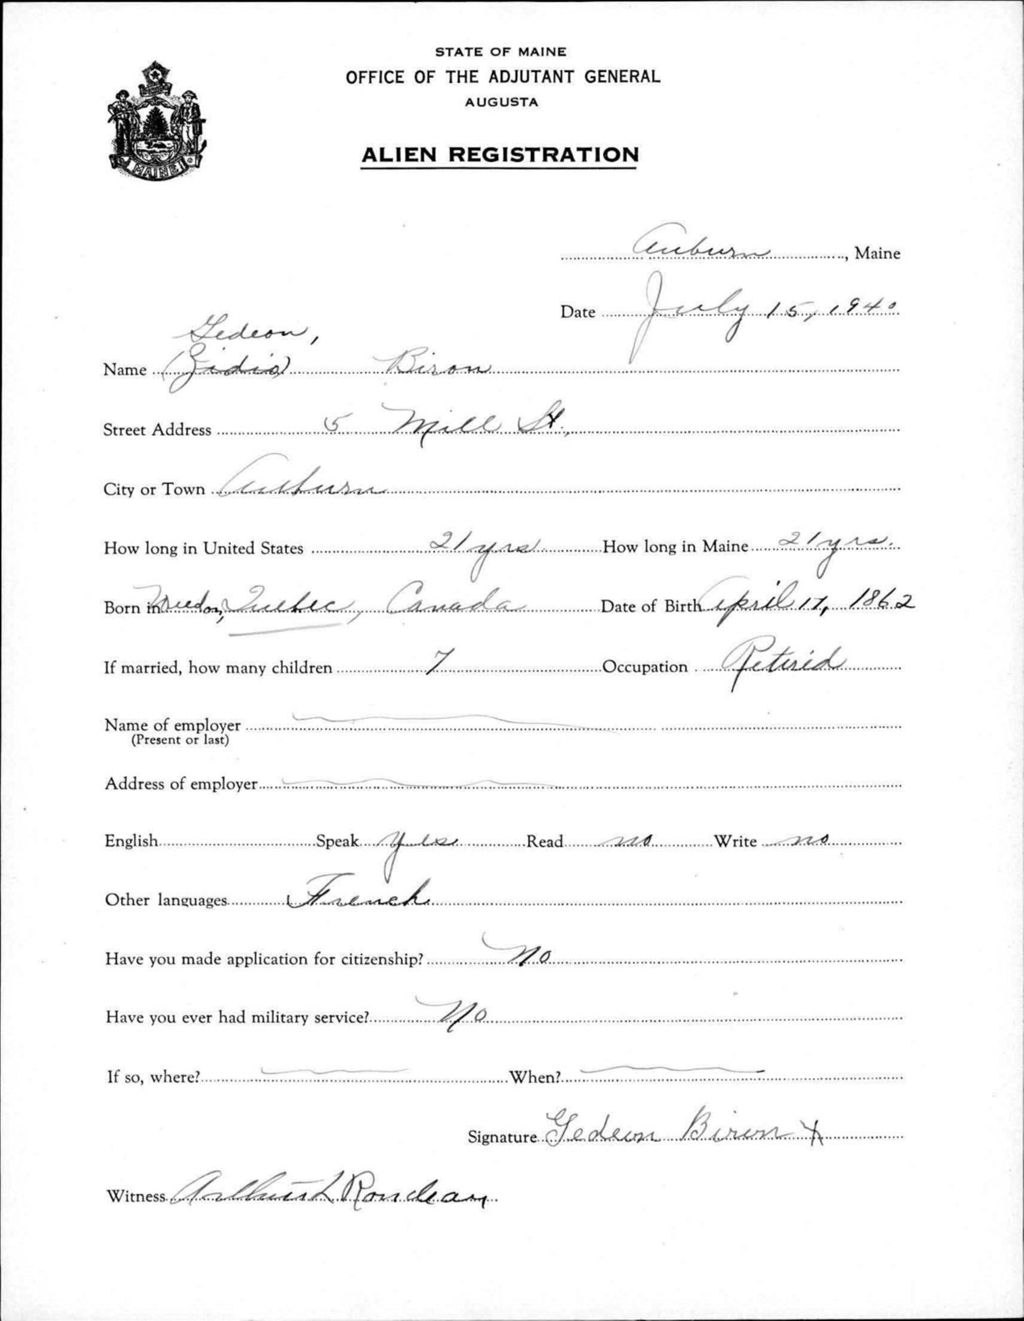 STATE OF MAINE
OFFICE OF THE ADJUTANT GENERAL
AUGUSTA
ALIEN REGISTRATION
MAINE
Auburn, Maine
Date July 15, 1940
Gedeon,
Name (Zidio) Biron
Street Address 5 Mill St.,
City or Town Auburn
How long in United States 21 yrs How long in Maine 21 yrs.
Born in Quebec, Canada Date of Birth April 17, 1862
If married, how many children 7 Occupation Retired
Name of employer
(Present or last)
Address of employer
English Speak Yes Read no Write no
Other languages French
Have you made application for citizenship? No
Have you ever had military service? No
If so, where? When?
Signature Gedeon Biron X
Witness Rondeau